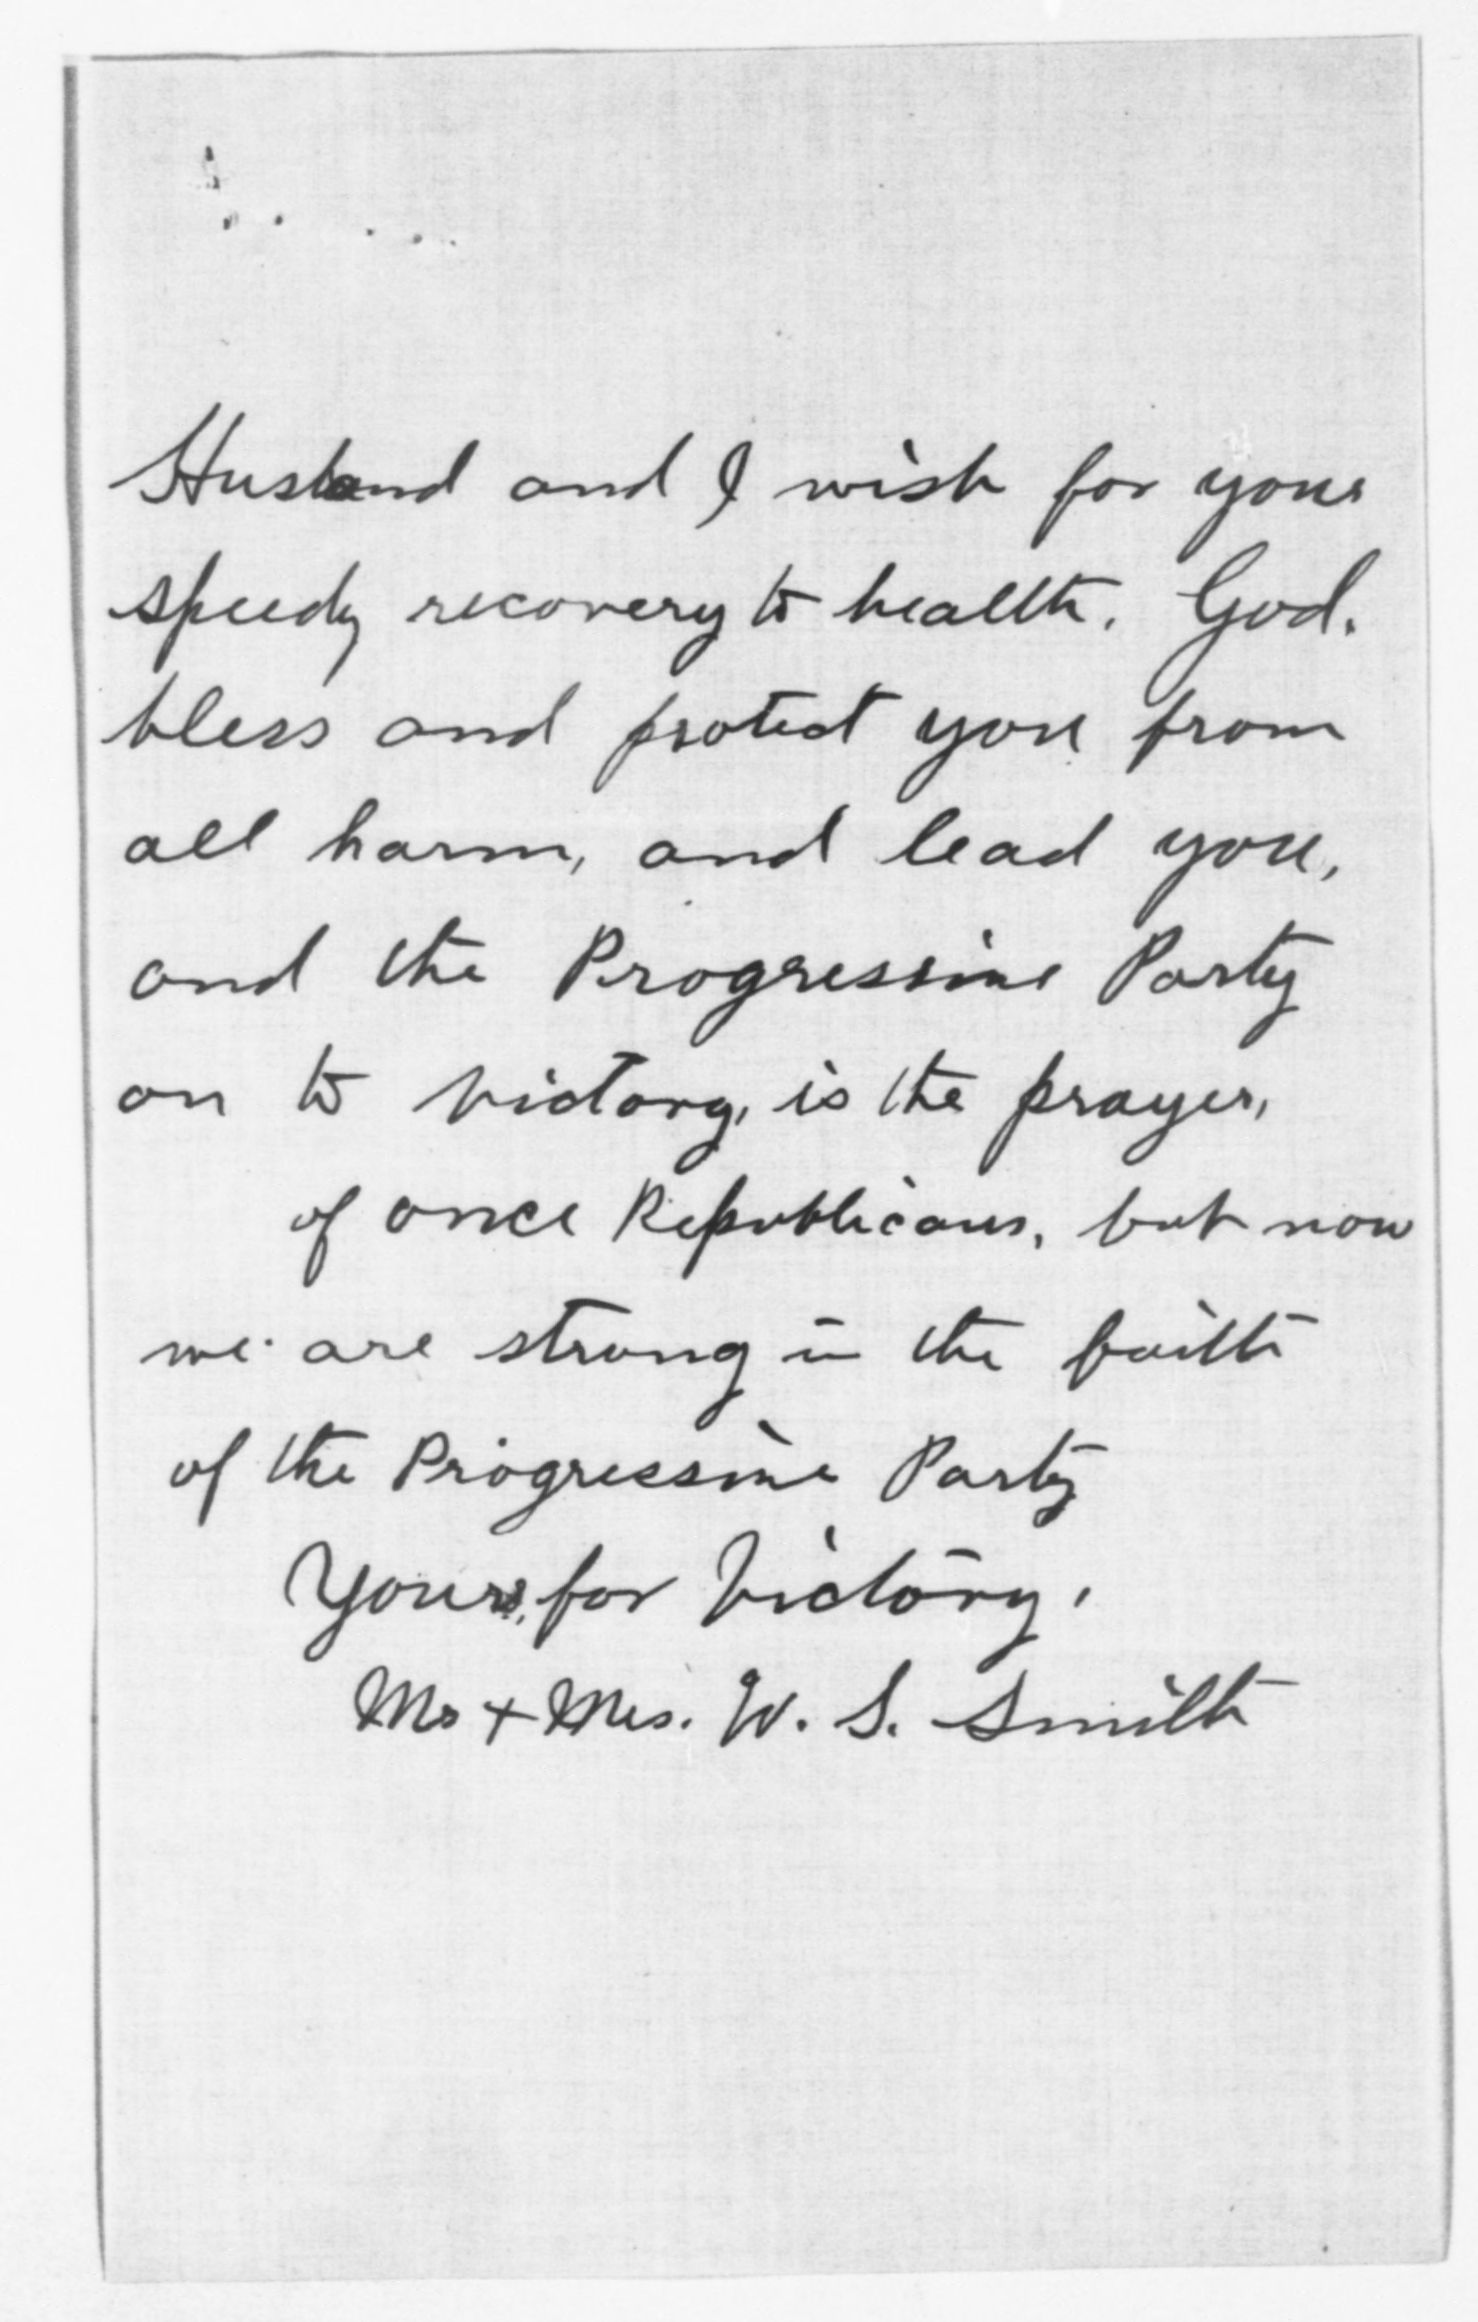 Husband and I wish for your
speedy recovery to health. God.
bless and protect you from
all harm, and lead you,
and the Progressive Party
on to victory, is the prayer,
of once Republicans, but now
we are strong in the faith
of the Progressive Party
Yours, for Victory,
Mr + Mrs. W. S. Smith